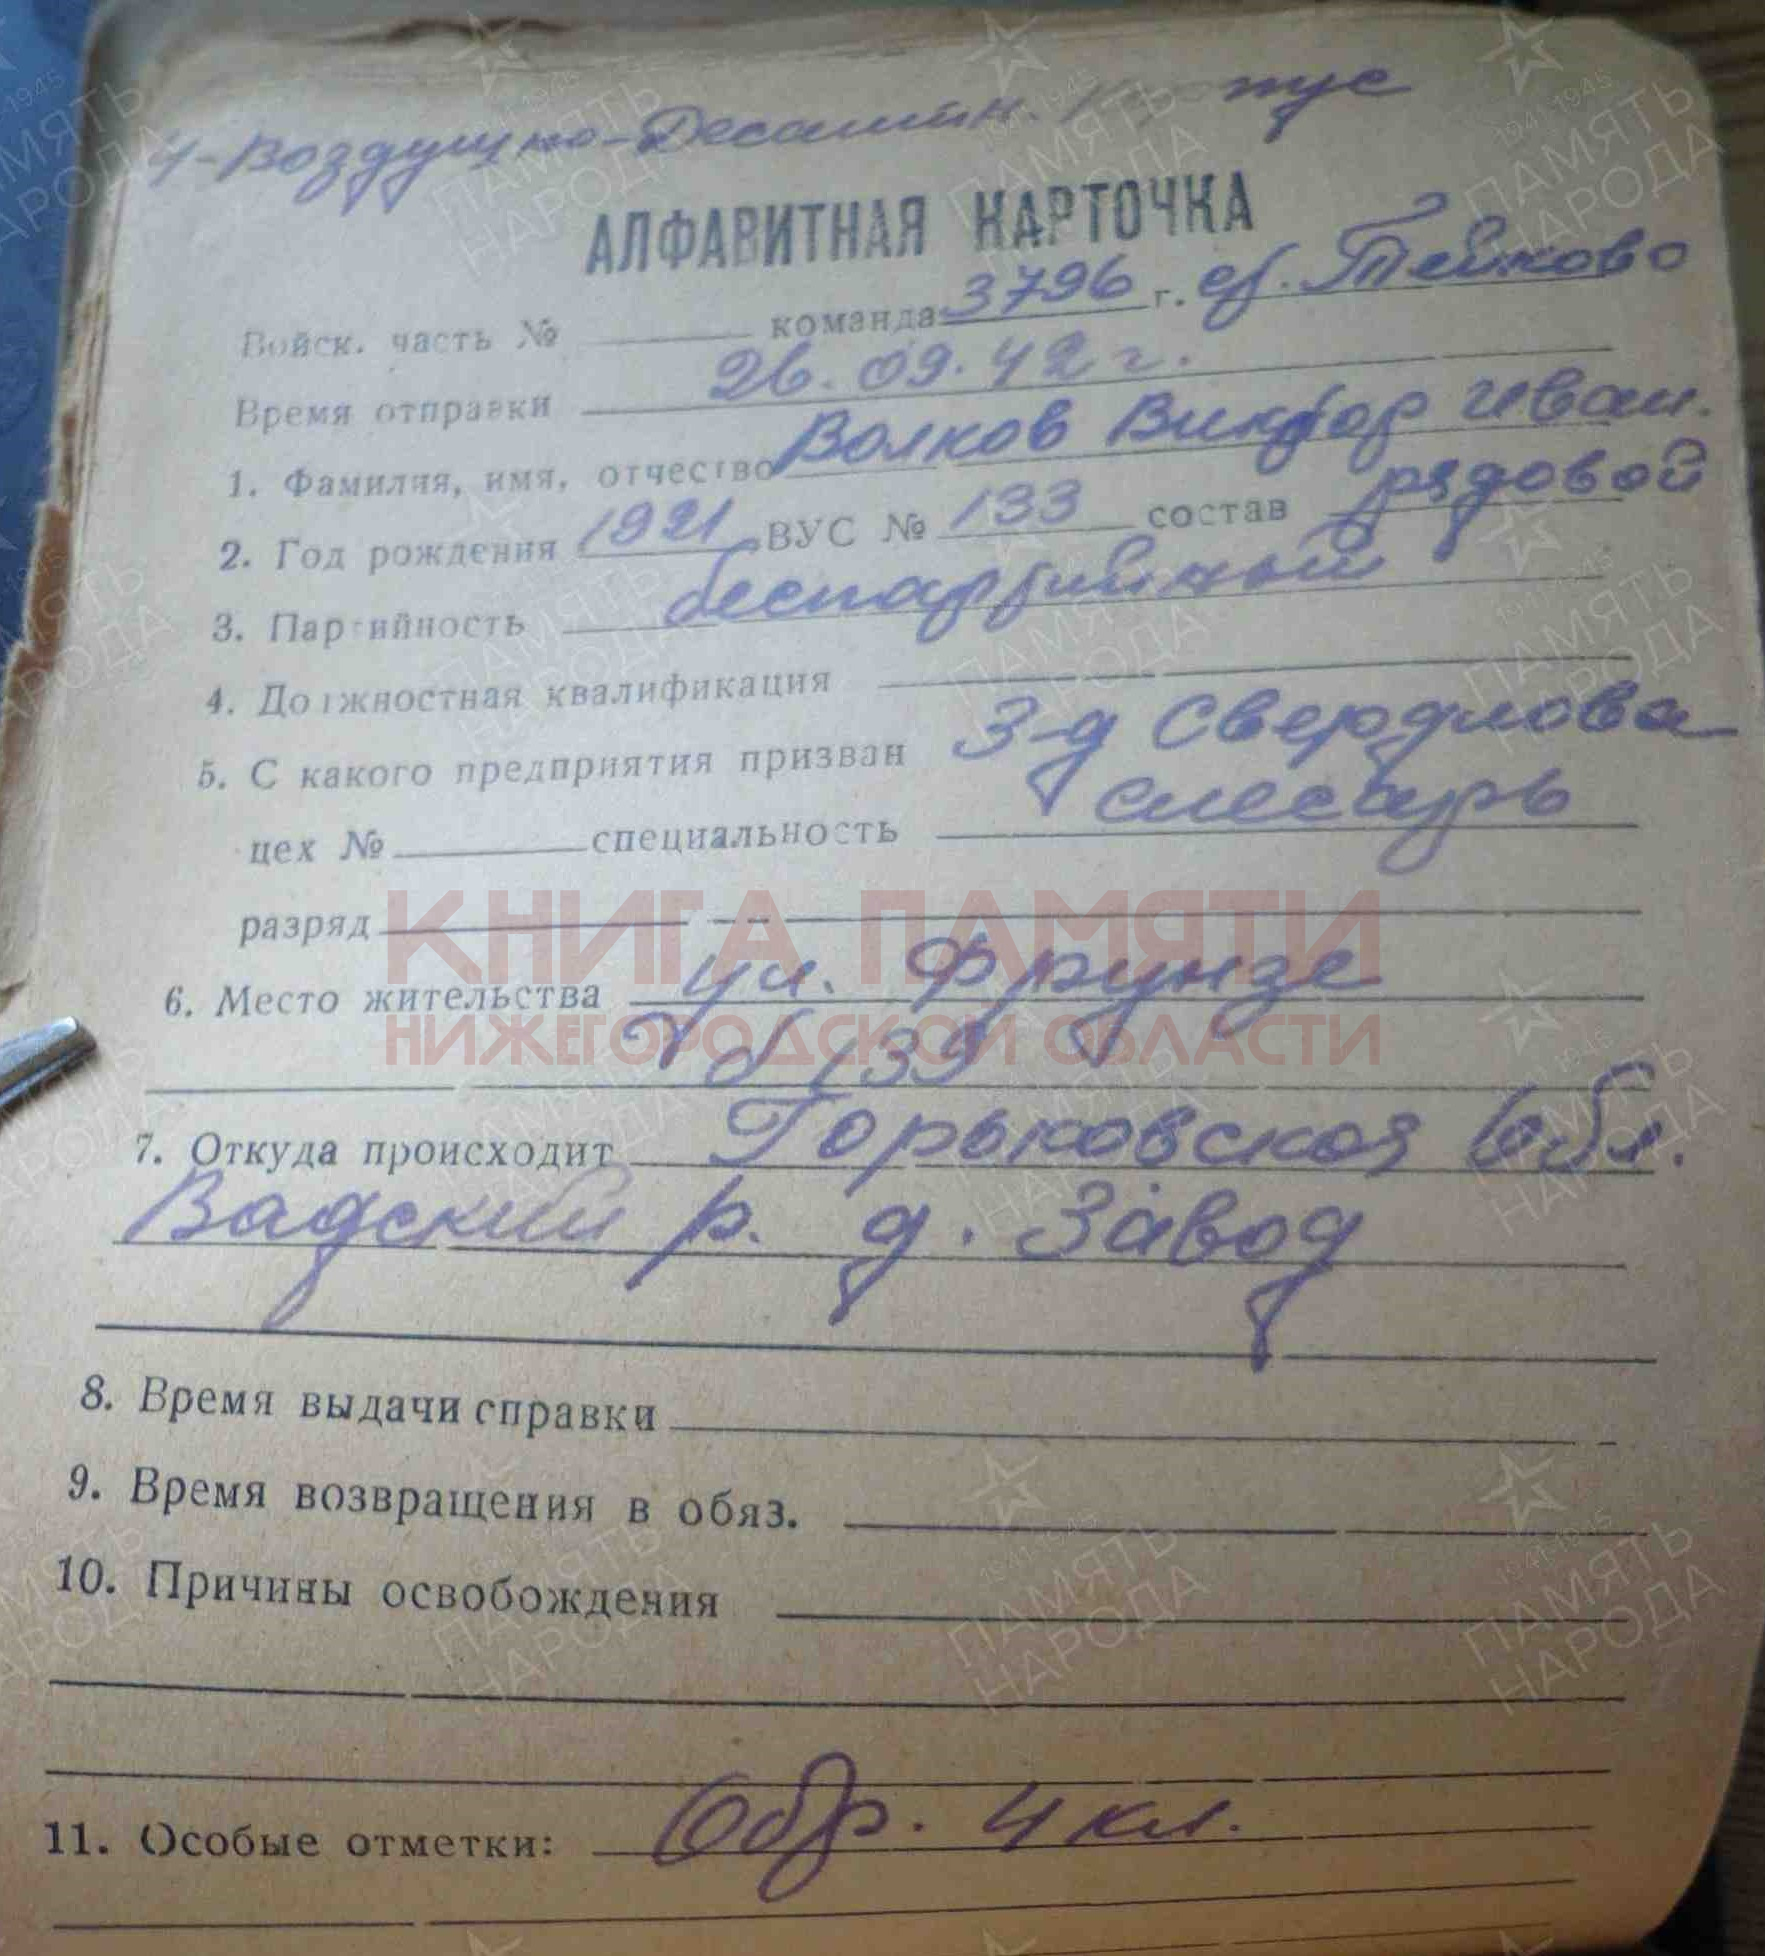 4-Воздушно-Десантн. Корпус
АЛФАВИТНАЯ КАРТОЧКА
Войск. часть № команда 3796 г. ст. Тейково
Время отправки 26.09.42 г.
1. Фамилия, имя, отчество Волков Виктор Иван.
2. Год рождения 1921 ВУС № 133 состав рядовой
3. Партийность беспартийный
4. Должностная квалификация
5. С какого предприятия призван З-д Свердлова
цех № специальность слесарь
разряд
КНИГА ПАМЯТИ
6. Место жительства ул. Фрунзе
НИЖЕГОРОДСКОЙ ОБЛАСТИ
139
7. Откуда происходит Горьковская обл.
Вадский р. д. Завод
8. Время выдачи справки
9. Время возвращения в обяз.
10. Причины освобождения
11. Особые отметки: Обр. 4 кл.
ПАМЯТЬ НАРОДА
1941-1945